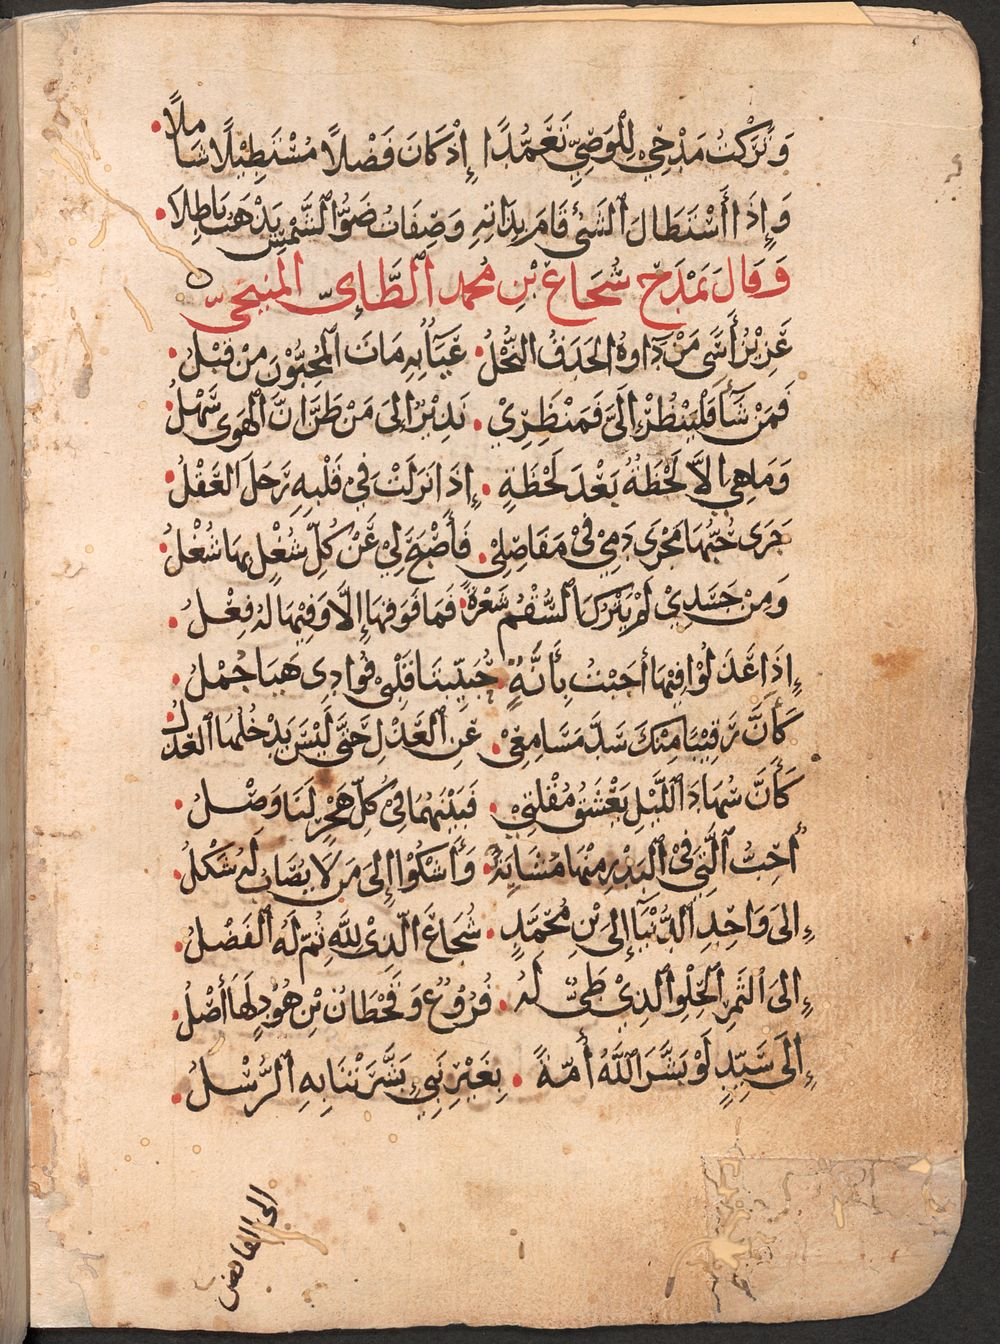 وَتَرَكْتُ مَدْحِي لِلْوَصِيِّ تَعَمُّدًا إِذْ كَانَ فَضْلًا مُسْتَطِيْلًا شَامِلًا
وَإِذَا ٱسْتَطَالَ ٱلشَّىْءُ قَامَ بِذَاتِهِ وَصِفَاتُ ضَوْءِ ٱلشَّمْسِ يَذْهَبُ بَاطِلَا
وَقَالَ يَمْدَحُ شُجَاعَ بْنِ مُحَمَّد ٱلطَّاىِٕىّ المنبجىّ
عَزِيْزُ أَسًى مَنْ دَاوهُ الحَدَقُ النُّجْلُ عَيَآءٌ بِهِ مَاتَ ٱلْمُحِبُّوْنَ مِنْ قَبْلُ
فَمَنْ شَآءَ فَلْيَنْظُرْ إِلَىَّ فَمَنْظَرِيْ نَذِيْرٌ إِلَى مَنْ ظَنَّ انَّ ٱلْهَوَى سَهْلُ
وَمَا هِيَ الَّا لَحْظَةٌ بَعْدَ لَحْظَةٍ إِذَا نَزَلَتْ فِيْ قَلْبِهِ رَحَلَ العَقْلُ
جَرَى حُبُّهَا مَجْرَى دَمِيْ فِىْ مَفَاصِلِىْ فَأَصْبَحَ لِيْ عَنْ كُلِّ شُغْلٍ بِهَا شُغْلُ
وَمِنْ جَسَدِيْ لَمْ يَتْرُكِ ٱلسُّقْمُ شَعْرَةً فَمَا فَوْقَهَا إِلَّا وَفِيْهَا لَهُ فِعْلُ
إِذَا عَذَلُوْا فِيْهَا أَجَبْتُ بِأَنَّةٍ حُبَيِّبَتَا قَلْبِىْ فُوَادِى هَيَا جُمْلُ
كَأَنَّ رَقِيْبًا مِنْكَ سَدَّ مَسَامِعِىْ عَنِ ٱلْعَذْلِ حَتَّى لَيْسَ يَدْخُلُهَا ٱلعَذْلُ
كَأَنَّ سُهَادَ ٱللَّيْلِ يَعْشَقُ مُقْلَتِيْ فَبَيْنَهُمَا فِىْ كُلِّ هَجْرٍ لَنَا وَصْلُ
أُحِبُّ ٱلَّتِيْ فِى ٱلْبَدْرِ مِنْهَا مُشَابَهٌ وَأَشْكُوْا إِلَى مَنْ لَا يُصَابُ لَهُ شَكْلُ
إِلَى وَاحِدِ ٱلدُّنْيَا إِلَى بْنِ مُحَمَّدٍ شُجَاعَ ٱلَّذِىْ لِلَّهِ ثُمَّ لَهُ ٱلْفَضْلُ
إِلَى ٱلثَّمَرِ ٱلْحُلْوِ ٱلَّذِيْ طَىِّءٌ لَهُ فُرُوْعٌ وَقَحْطَانُ بْنُ هُوْدٍ لَهَا أَصْلُ
إِلَى سَيِّدٍ لَوْ بَشَّرَ ٱللَّهُ أُمَّةً بِغَيْرِ نَبِيٍّ بَشَّرَتْنَا بِهِ ٱلرُّسْلُ
الى القابض